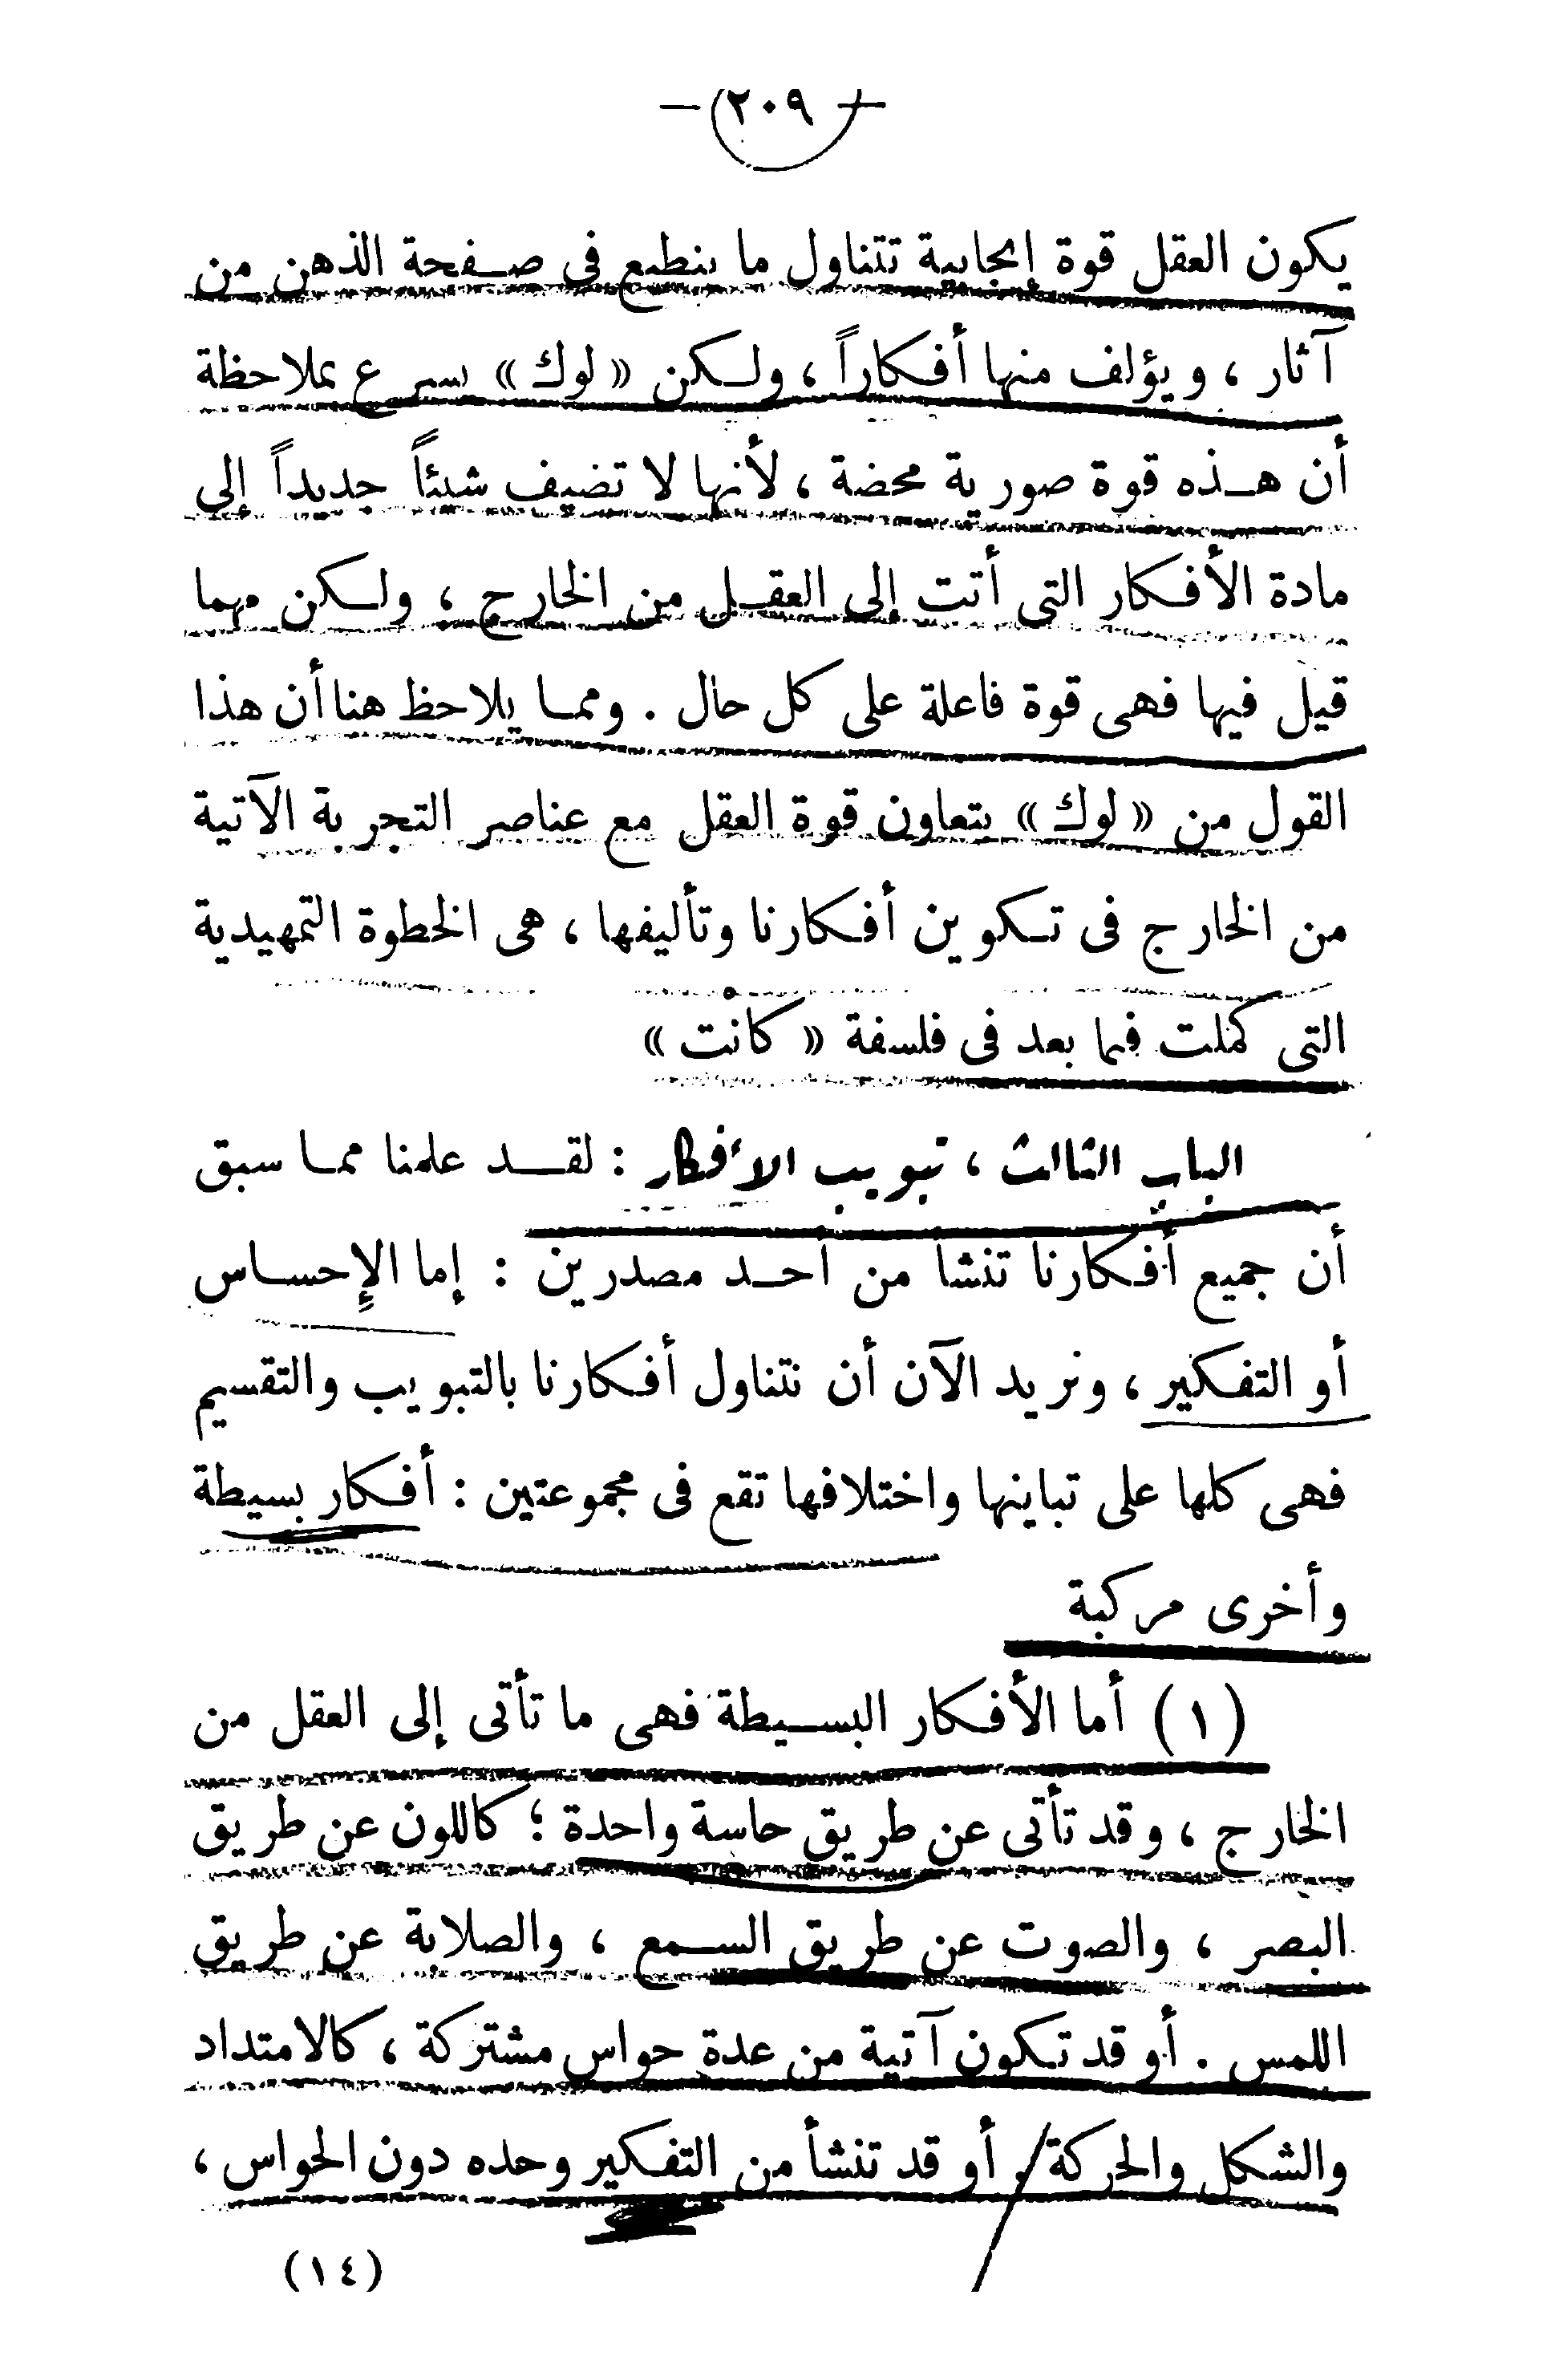 — ٢٠٩ —
يكون العقل قوة إيجابية تتناول ما ينطبع فى صفحة الذهن من
آثار ، ويؤلف منها أفكاراً ، ولكن « لوك » يسرع بملاحظة
أن هذه قوة صورية محضة ، لأنها لا تضيف شيئاً جديداً إلى
مادة الأفكار التى أتت إلى العقل من الخارج ، ولكن مهما
قيل فيها فهى قوة فاعلة على كل حال . ومما يلاحظ هنا أن هذا
القول من « لوك » بتعاون قوة العقل مع عناصر التجربة الآتية
من الخارج فى تكوين أفكارنا وتأليفها ، هى الخطوة التمهيدية
التى كملت فيما بعد فى فلسفة « كانْت »
الباب الثالث ، تبويب الأفكار : لقد علمنا مما سبق
أن جميع أفكارنا تنشأ من أحد مصدرين : إما الإحساس
أو التفكير ، ونريد الآن أن نتناول أفكارنا بالتبويب والتقسيم
فهى كلها على تباينها واختلافها تقع فى مجموعتين : أفكار بسيطة
وأخرى مركبة
( ١ ) أما الأفكار البسيطة فهى ما تأتى إلى العقل من
الخارج ، وقد تأتى عن طريق حاسة واحدة ؛ كاللون عن طريق
البصر ، والصوت عن طريق السمع ، والصلابة عن طريق
اللمس . أو قد تكون آتية من عدة حواس مشتركة ، كالامتداد
والشكل والحركة / أو قد تنشأ من التفكير وحده دون الحواس ،
(١٤)